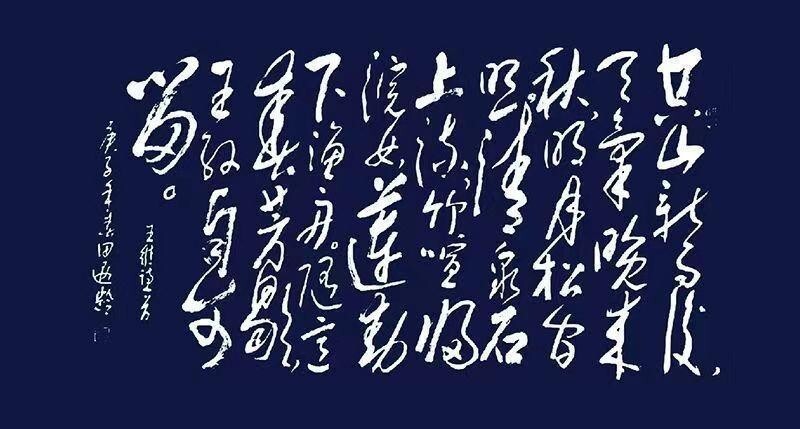 空山新雨後,
天氣晚来
秋,明月松间
照,清泉石
上流竹喧归
浣女莲動
下渔舟。随意
春芳歇,
王孙自可
留。
王维诗
庚子年